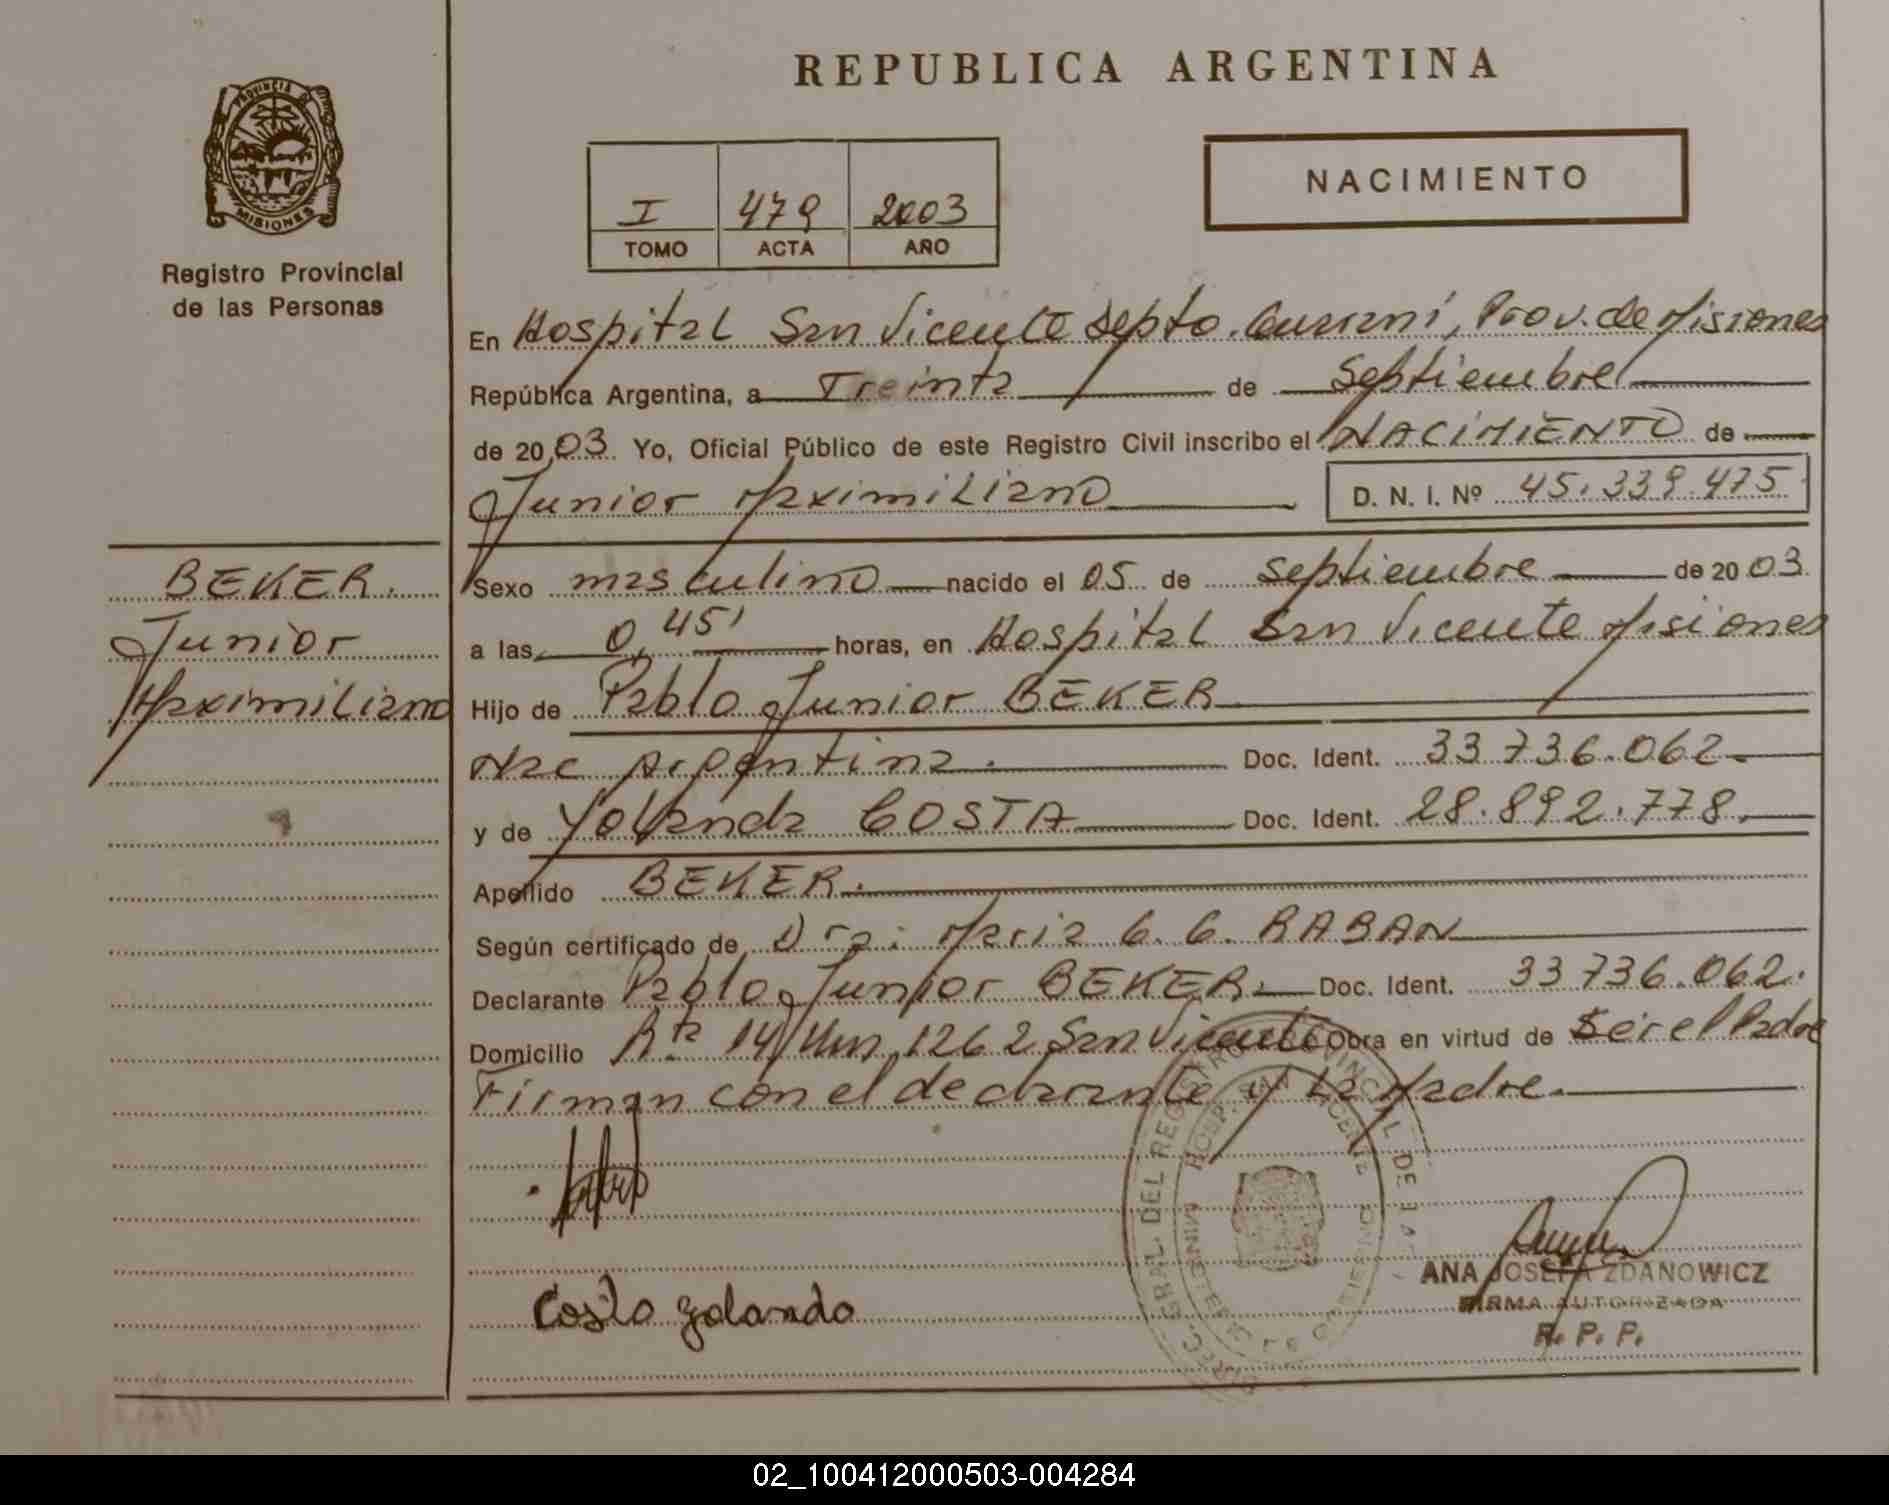 REPUBLICA ARGENTINA
PROVINCIA DE
MISIONES
Registro Provincial
de las Personas
NACIMIENTO
I 479 2003
TOMO ACTA AÑO
En Hospital San Vicente Depto. Guaraní, Prov. de Misiones
República Argentina, a Treinta de Septiembre
de 2003 Yo, Oficial Público de este Registro Civil inscribo el NACIMIENTO de
Junior Maximiliano D. N. I. Nº 45.339.475
BEKER.
Junior
Maximiliano
Sexo masculino nacido el 05 de Septiembre de 2003
a las 0,45' horas, en Hospital San Vicente Misiones
Hijo de Pablo Junior BEKER
Nac Argentina. Doc. Ident. 33.736.062
y de Yolanda COSTA Doc. Ident. 28.892.778.
Apellido BEKER.
Según certificado de Dra: Maria G. G. RABAN
Declarante Pablo Junior BEKER. Doc. Ident. 33 736.062.
Domicilio Rta 14 Km 1262 San Vicente Obra en virtud de Ser el Padre
Firman con el declarante y la Madre.
Costa Yolanda
ANA JOSEFA ZDANOWICZ
FIRMA AUTORIZADA
R. P. P.
02_100412000503-004284